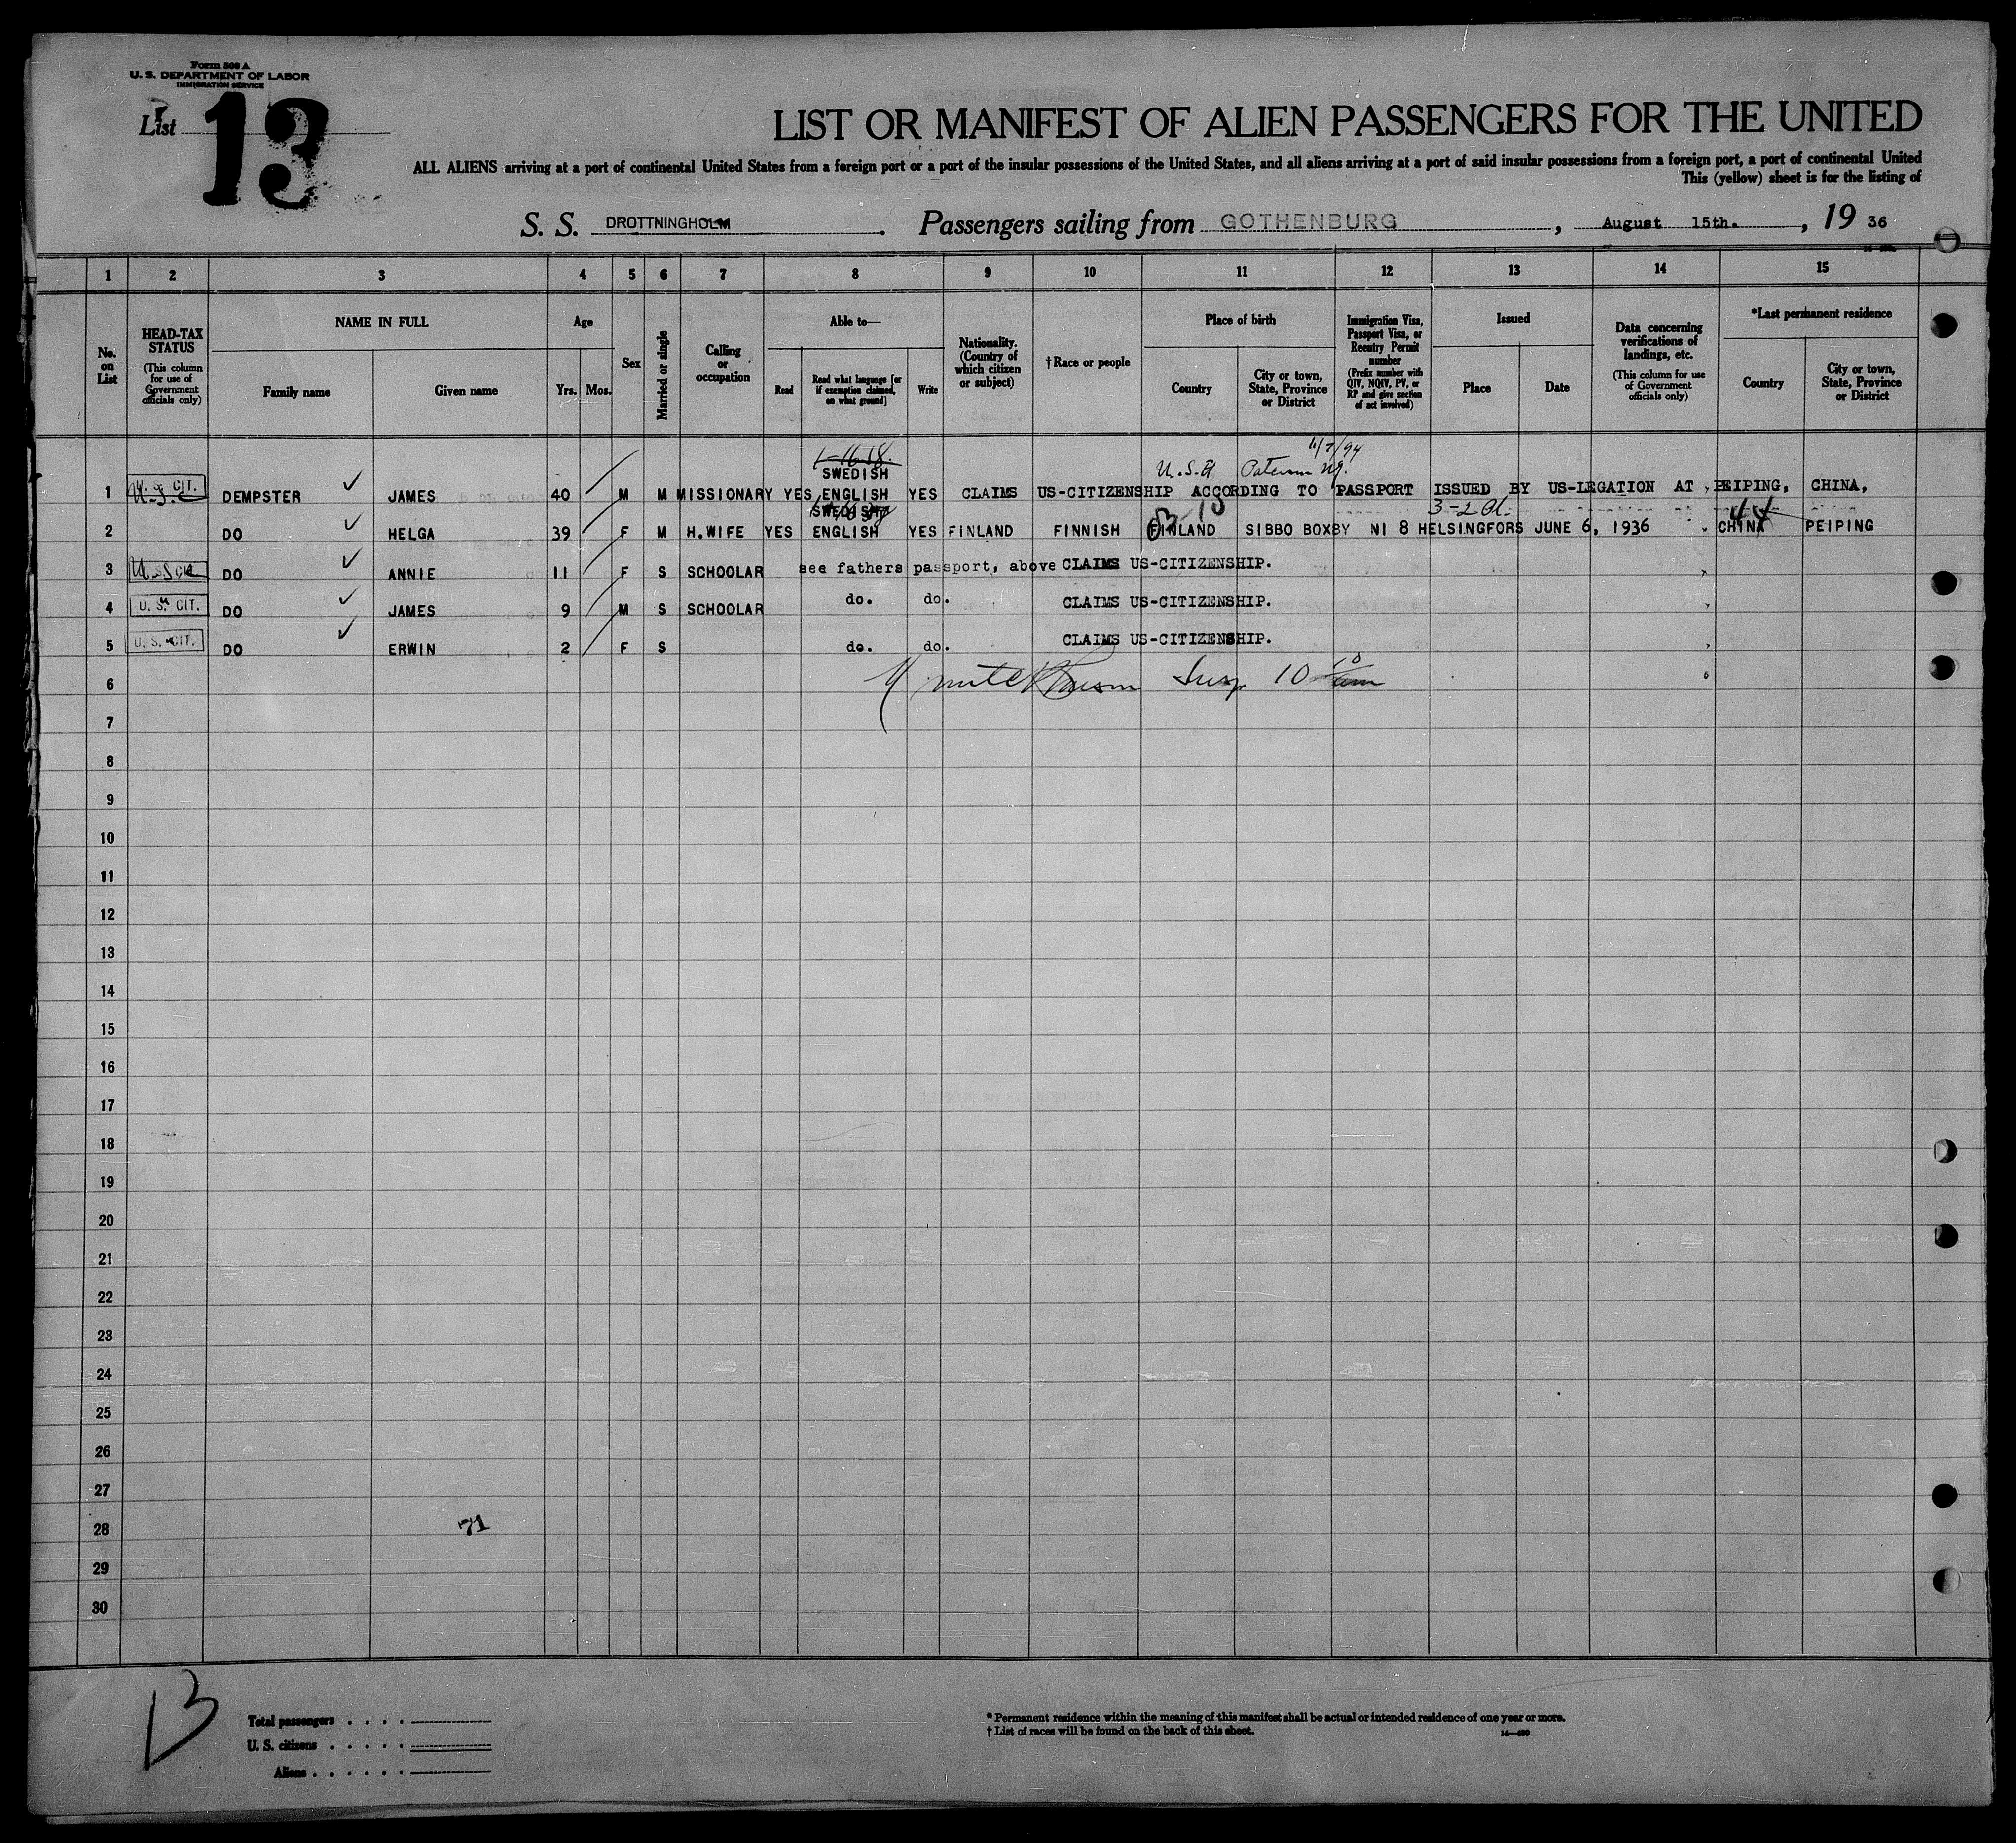 Form 500 A
U. S. DEPARTMENT OF LABOR
IMMIGRATION SERVICE
List 13
LIST OR MANIFEST OF ALIEN PASSENGERS FOR THE UNITED
ALL ALIENS arriving at a port of continental United States from a foreign port or a port of the insular possessions of the United States, and all aliens arriving at a port of said insular possessions from a foreign port, a port of continental United
This (yellow) sheet is for the listing of
S. S. DROTTNINGHOLM. Passengers sailing from GOTHENBURG, August 15th., 19 36
1 2 3 4 5 6 7 8 9 10 11 12 13 14 15
No. on List
HEAD-TAX STATUS
(This column for use of Government officials only)
NAME IN FULL
Family name
Given name
Age
Yrs. Mos.
Sex
Married or single
Calling or occupation
Able to—
Read
Read what language [or if exemption claimed, on what ground]
Write
Nationality. (Country of which citizen or subject)
†Race or people
Place of birth
Country
City or town, State, Province or District
Immigration Visa, Passport Visa, or Reentry Permit number
(Prefix number with QIV, NQIV, PV, or RP and give section of act involved)
Issued
Place
Date
Data concerning verifications of landings, etc.
(This column for use of Government officials only)
*Last permanent residence
Country
City or town, State, Province or District
11/7/94
SWEDISH U.S.A
1 U. S. CIT. DEMPSTER JAMES 40 M M MISSIONARY YES ENGLISH YES CLAIMS US-CITIZENSHIP ACCORDING TO PASSPORT ISSUED BY US-LEGATION AT PEIPING, CHINA,
SWEDISH
2 DO HELGA 39 F M H.WIFE YES ENGLISH YES FINLAND FINNISH FINLAND SIBBO BOXBY NI 8 HELSINGFORS JUNE 6, 1936 CHINA PEIPING
3 DO ANNIE 11 F S SCHOOLAR see fathers passport, above CLAIMS US-CITIZENSHIP.
4 U. S. CIT. DO JAMES 9 M S SCHOOLAR do. do. CLAIMS US-CITIZENSHIP.
5 U. S. CIT. DO ERWIN 2 F S do. do. CLAIMS US-CITIZENSHIP.
6
7
8
9
10
11
12
13
14
15
16
17
18
19
20
21
22
23
24
25
26
27
28
71
29
30
13
Total passengers
U. S. citizens
Aliens
* Permanent residence within the meaning of this manifest shall be actual or intended residence of one year or more.
† List of races will be found on the back of this sheet.